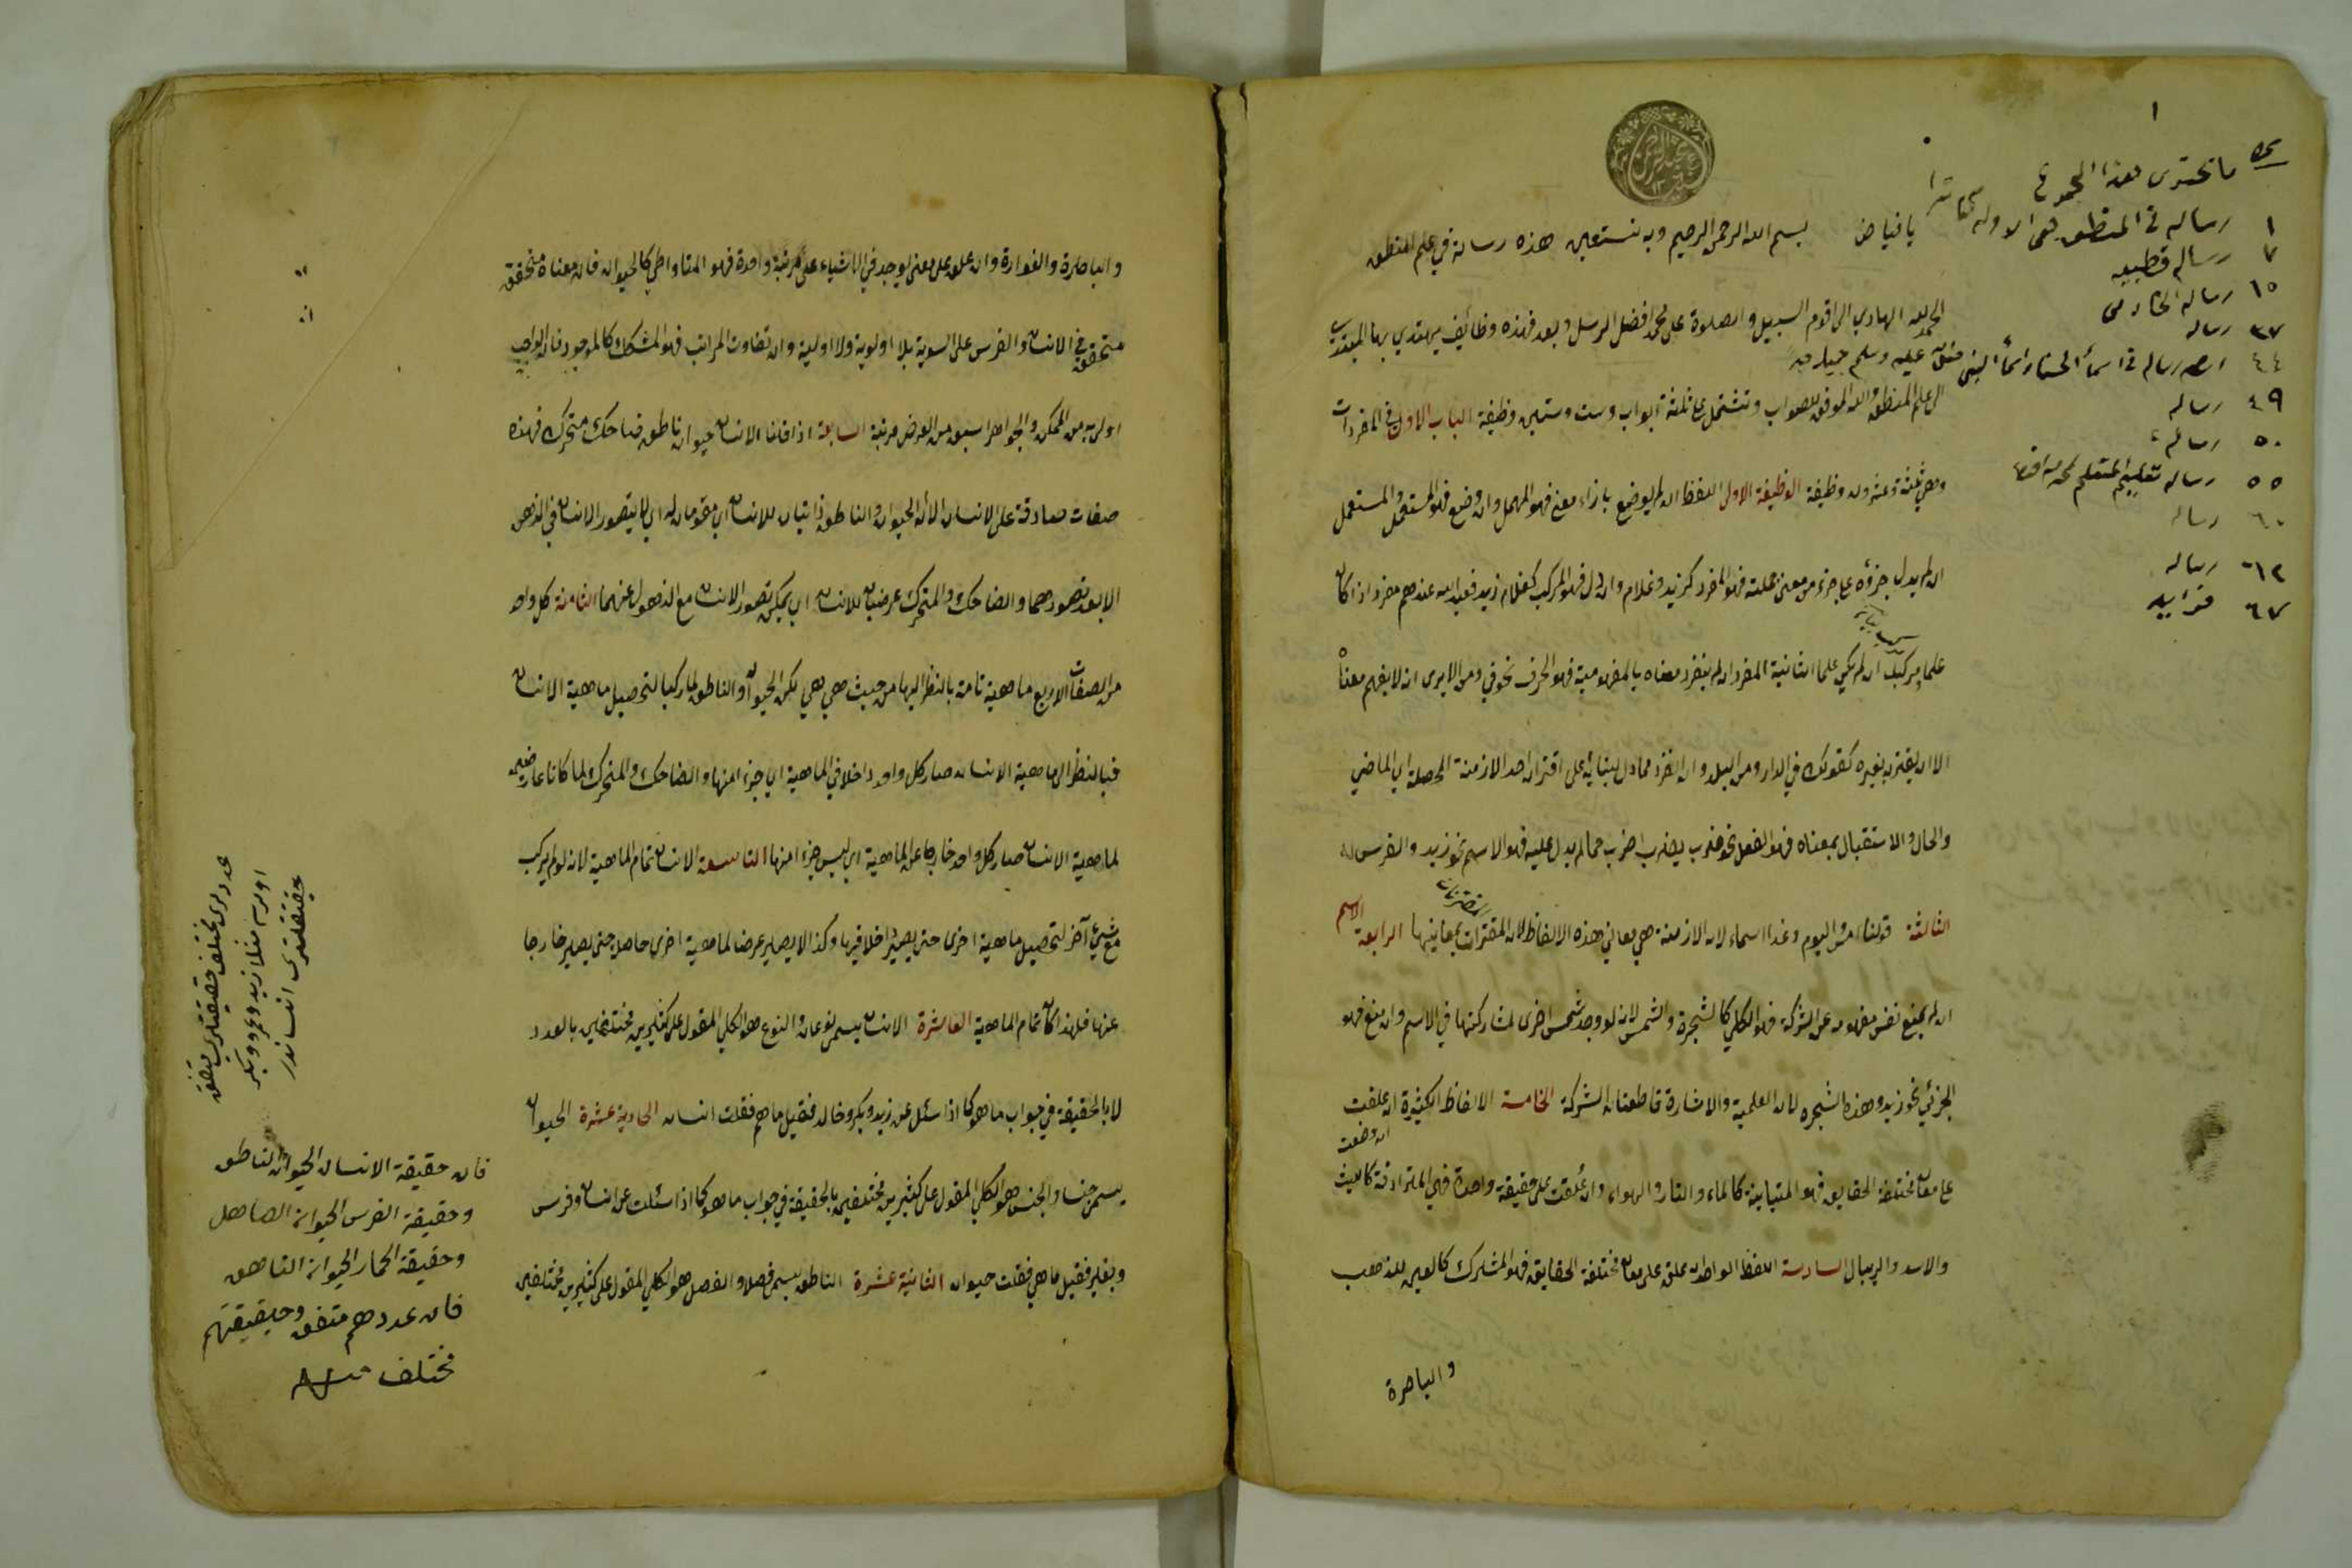 ١
ما تحتوى هذا المجموع
١ رساله فى المنطق هى الاوله
٧ رساله قطبيه
١٥ رساله الخادمى
٣٧ رساله
٤٤ رساله فى اسماء الحسنا واسماء النبى صلى الله عليه وسلم
٤٩ رساله
٥٠ رساله
٥٥ رساله تعليم المتعلم
٦٠ رساله
٦٢ رساله
٦٧ فوايد
يا فياض
بسم الله الرحمن الرحيم وبه نستعين هذه رسالة في علم المنطق
الحمد لله الهادي الى اقوم السبيل والصلوة على محمد افضل الرسل وبعد فهذه وظائف يهتدي بها المبتدي
الى علم المنطق والله الموفق للصواب وتشتمل على ثلثة ابواب وست وستين وظيفة الباب الاول في المفردات
وهي ثلثة وعشرون وظيفة الوظيفة الاولى اللفظ ان لم يوضع بازاء معنى فهو المهمل وان وضع فهو المستعمل والمستعمل
ان لم يدل جزؤه على جزء من معنى جملته فهو المفرد كزيد وغلام وان دل فهو المركب كغلام زيد فعبد الله عندهم مفرد اذا كان
علما ومركب ان لم يكن علما الثانية المفرد ان لم ينفرد معناه بالمفهومية فهو الحرف نحو في ومن الا يرى انه لا يفهم معناه
الا ان يقترن بغيره كقولك في الدار ومن البلد وان انفرد مما دل ببنائه على اقتران احد الازمنة المحصلة اي الماضي
والحال والاستقبال بمعناه فهو الفعل نحو ضرب يضرب اضرب مما لم يدل عليه فهو الاسم نحو زيد والفرس
الثالثة قولنا امس اليوم وغدا اسماء لان الازمنة هي معاني هذه الالفاظ لا المقترنات بمعانيها الرابعة الاسم
ان لم يمنع نفس مفهومه عن الشركة فهو الكلي كالشجرة والشمس لانه لو وجد شمس اخرى لشاركتها في الاسم وان منع فهو
الجزئي نحو زيد وهذه الشجره لان العلمية والاشارة قاطعتان الشركة الخامسة الالفاظ الكثيرة ان علقت
ان وضعت
على معان مختلفة الحقايق فهو المتباينة كالماء والنار والهواء وان علقت على حقيقة واحدة فهي المترادفة كالليث
والاسد والريبال السادسة اللفظ الواحد ان علق على معان مختلفة الحقايق فهو المشترك كالعين للذهب
والباصرة
والباصرة والفوارة وان علق على معنى يوجد في الاشياء على مرتبة واحدة فهو المتواطي كالحيوان فان معناه متحقق
متحقق في الانسان والفرس على السوية بلا اولوية ولا اولية وان تفاوت المراتب فهو المشكك كالموجود فان الواجب
اولى به من الممكن والجواهر اسبق من العرض مرتبة السابعة اذا قلنا الانسان حيوان ناطق ضاحك متحرك فهذه
صفات صادقة على الانسان الا ان الحيوان والناطق ذاتيان للانسان اي مقومان له اي لا يتصور الانسان في الذهن
الا بعد تصورهما والضاحك والمتحرك عرضيان للانسان اي يمكن تصور الانسان مع الذهول عنهما الثامنة كل واحد
من الصفات الاربع ماهية تامة بالنظر اليها من حيث هي هي لكن الحيوان والناطق لما ركبا لتحصيل ماهية الانسان
فبالنظر الى ماهية الانسان صار كل واحد داخلا في الماهية اي جزء امنها والضاحك والمتحرك لما كانا عارضين
لماهية الانسان صار كل واحد خارجا عن الماهية اي ليس جزء امنها التاسعة الانسان تمام الماهية لانه لو لم يركب
مع شيئ آخر لتحصيل ماهية اخرى حتى يصير داخلا فيها وكذا لا يصير عرضا لماهية اخرى حاصلة حتى يصير خارجا
عنها فلهذا كان تمام الماهية العاشرة الانسان يسمى نوعا والنوع هو الكلي المقول على كثيرين مختلفين بالعدد
لا بالحقيقة في جواب ما هو كما اذا سئل عن زيد وبكر وخالد فقيل ما هم فقلت انسان الحادية عشرة الحيوان
يسمى جنسا والجنس هو الكلي المقول على كثيرين مختلفين بالحقيقة في جواب ما هو كما اذا سئلت عن انسان وفرس
وبقر فقيل ما هي فقلت حيوان الثانية عشرة الناطق يسمى فصلا والفصل هو الكلي المقول على كثيرين مختلفين
عددلرى مختلف حقيقتلرى متفق
اولور مثلا زيد وعمرو وبكر
حقيقتلرى انساندر
فان حقيقة الانسان الحيوان الناطق
وحقيقة الفرس الحيوان الصاهل
وحقيقة الحمار الحيوان الناهق
فان عددهم متفق وحقيقتهم
مختلف